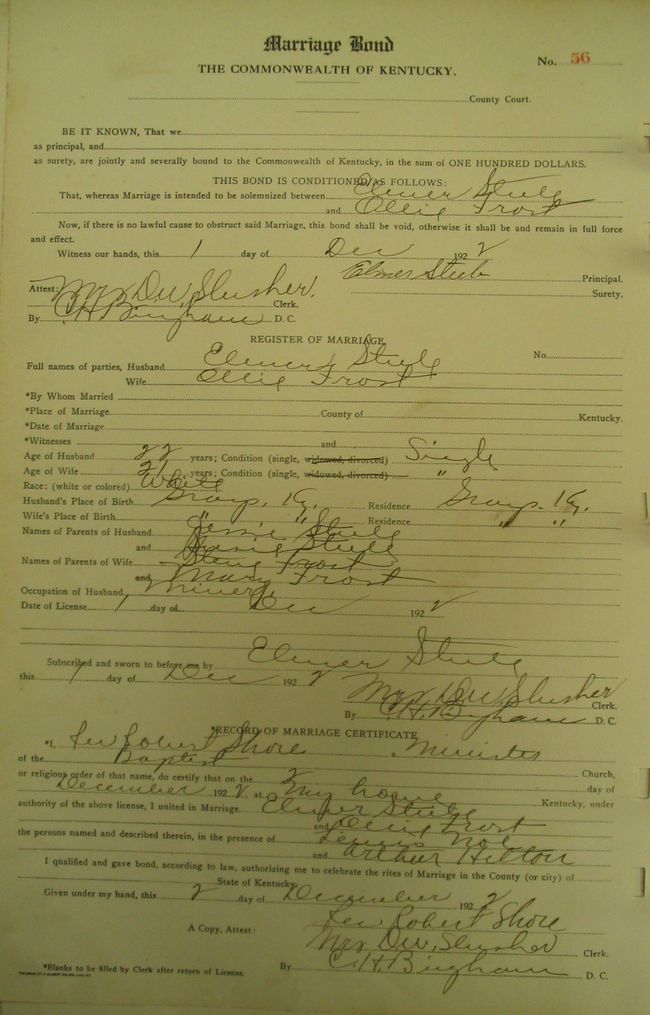 Marriage Bond
No. 56
THE COMMONWEALTH OF KENTUCKY.
County Court.
BE IT KNOWN, That we
as principal, and
as surety, are jointly and severally bound to the Commonwealth of Kentucky, in the sum of ONE HUNDRED DOLLARS.
THIS BOND IS CONDITIONED AS FOLLOWS:
That, whereas Marriage is intended to be solemnized between Elmer Steele
and Ollie Frost
Now, if there is no lawful cause to obstruct said Marriage, this bond shall be void, otherwise it shall be and remain in full force
and effect.
Witness our hands, this 1 day of Dec 1922
Elmer Principal.
Surety.
Attest: Mrs D W Slusher. Clerk.
By C. H. Bingham D. C.
REGISTER OF MARRIAGE
No.
Full names of parties, Husband Elmer Steele
Wife Ollie Frost
*By Whom Married
*Place of Marriage County of Kentucky.
*Date of Marriage
*Witnesses and
Age of Husband 22 years; Condition (single, widowed, divorced) Single
Age of Wife 21 years; Condition (single, widowed, divorced) "
Race: (white or colored) White
Husband's Place of Birth Residence
Wife's Place of Birth " " Residence " "
Names of Parents of Husband Jessie Steele
and Steele
Names of Parents of Wife Frost
and Mary Frost
Occupation of Husband, Miner
Date of License 1 day of Dec 1922
Subscribed and sworn to before me by Elmer Steele
this 1 day of Dec 1922
Mrs D W Slusher Clerk.
By C. H. Bingham D. C.
*RECORD OF MARRIAGE CERTIFICATE
*I, Rev Robert Shore a Minister
of the Baptist Church,
or religious order of that name, do certify that on the 2 day of
December 1922 at My home Kentucky, under
authority of the above license, I united in Marriage Elmer Steele
and Ollie Frost
the persons named and described therein, in the presence of
and Arthur Hilton
I qualified and gave bond, according to law, authorizing me to celebrate the rites of Marriage in the County (or city) of
State of Kentucky.
Given under my hand, this 2 day of December 1922
Rev Robert Shore
A Copy, Attest: Mrs D W Slusher Clerk.
*Blanks to be filled by Clerk after return of License. By C. H. Bingham D. C.